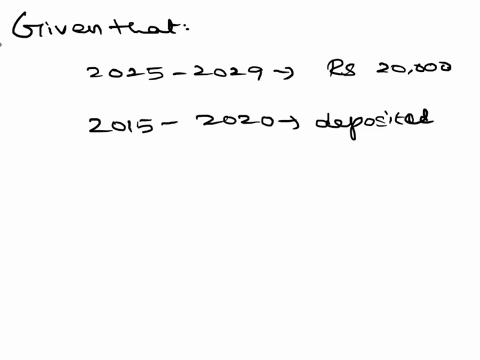 Given that:
2025 - 2029 → Rs 20,000
2015 - 2020 → deposited